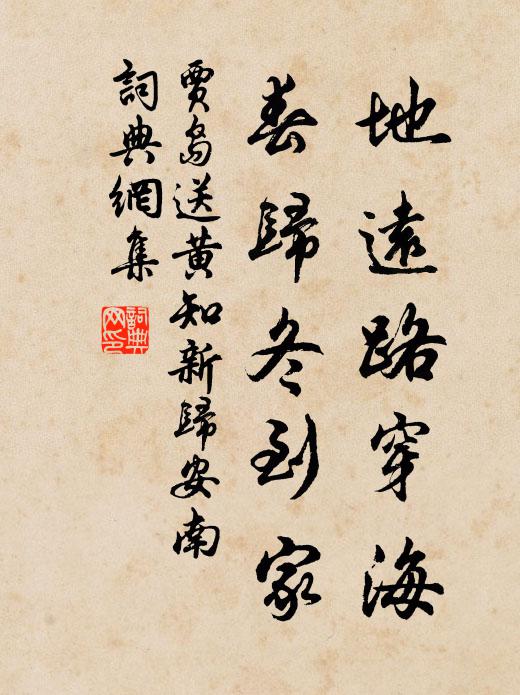 地遠路穿海
春歸冬到家
賈島送黃知新歸安南
詞典網集
詞典網印